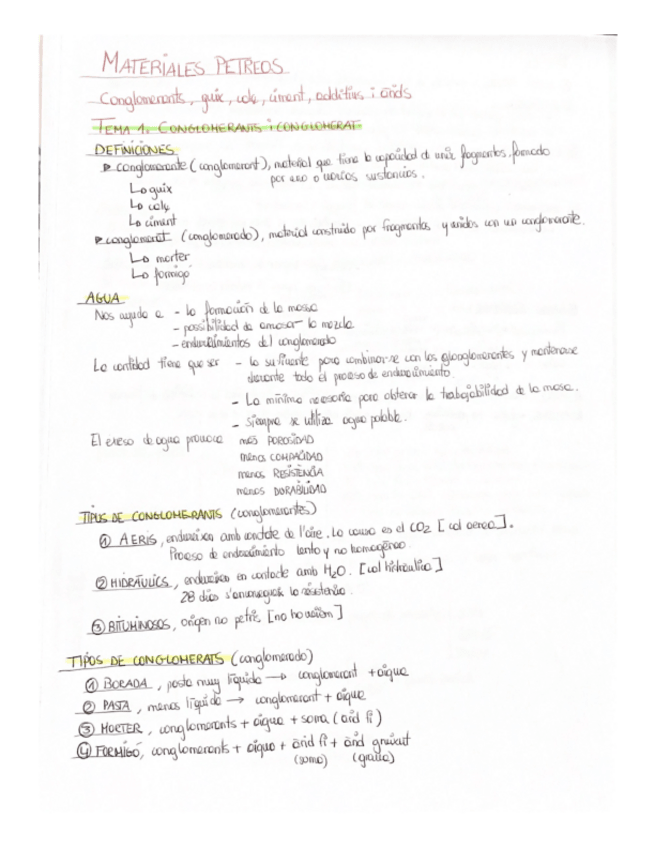 MATERIALES PETREOS
Conglomerants, guix, calç, ciment, additius i àrids
TEMA 1. CONGLOMERANTS i CONGLOMERAT
DEFINICIONES
conglomerante (conglomerant), material que tiene la capacidad de unir fragmentos. formado
por una o varias sustancias.
guix
calç
ciment
conglomerat (conglomerado), material construido por fragmentos y unidos con un conglomerante.
morter
formigó
AGUA
Nos ayuda a - la formación de la massa
- possibilidad de amasar la mezcla
- endurecimientos del conglomerado
La cantidad tiene que ser - la suficiente para combinar-se con los conglomerantes y mantenerse
durante todo el proceso de endurecimiento.
- La mínima necesaria para obtener la trabajabilidad de la masa.
- siempre se utiliza agua potable.
El exceso de agua provoca més POROSIDAD
menos COMPACIDAD
menos RESISTÈNCIA
menos DURABILIDAD
TIPUS DE CONGLOMERANTS (conglomerantes)
① AERIS, endureixen amb contacte de l'aire. La causa es el CO2 [cal aerea].
Proceso de endurecimiento lento y no homogéneo.
② HIDRÀULICS, endureixen en contacte amb H2O. [cal hidraulica]
28 dias s'aconsegueix la resistencia.
③ BITUMINOSOS, origen no petris, [no ho veiem]
TIPOS DE CONGLOMERATS (conglomerado)
① BORADA, pasta muy líquida → conglomerant + aigua
② PASTA, menos líquida → conglomerant + aigua
③ MORTER, conglomerants + aigua + sorra (àrid fi)
④ FORMIGÓ, conglomerants + aigua + àrid fi + àrid gruixut
(sorra) (grava)